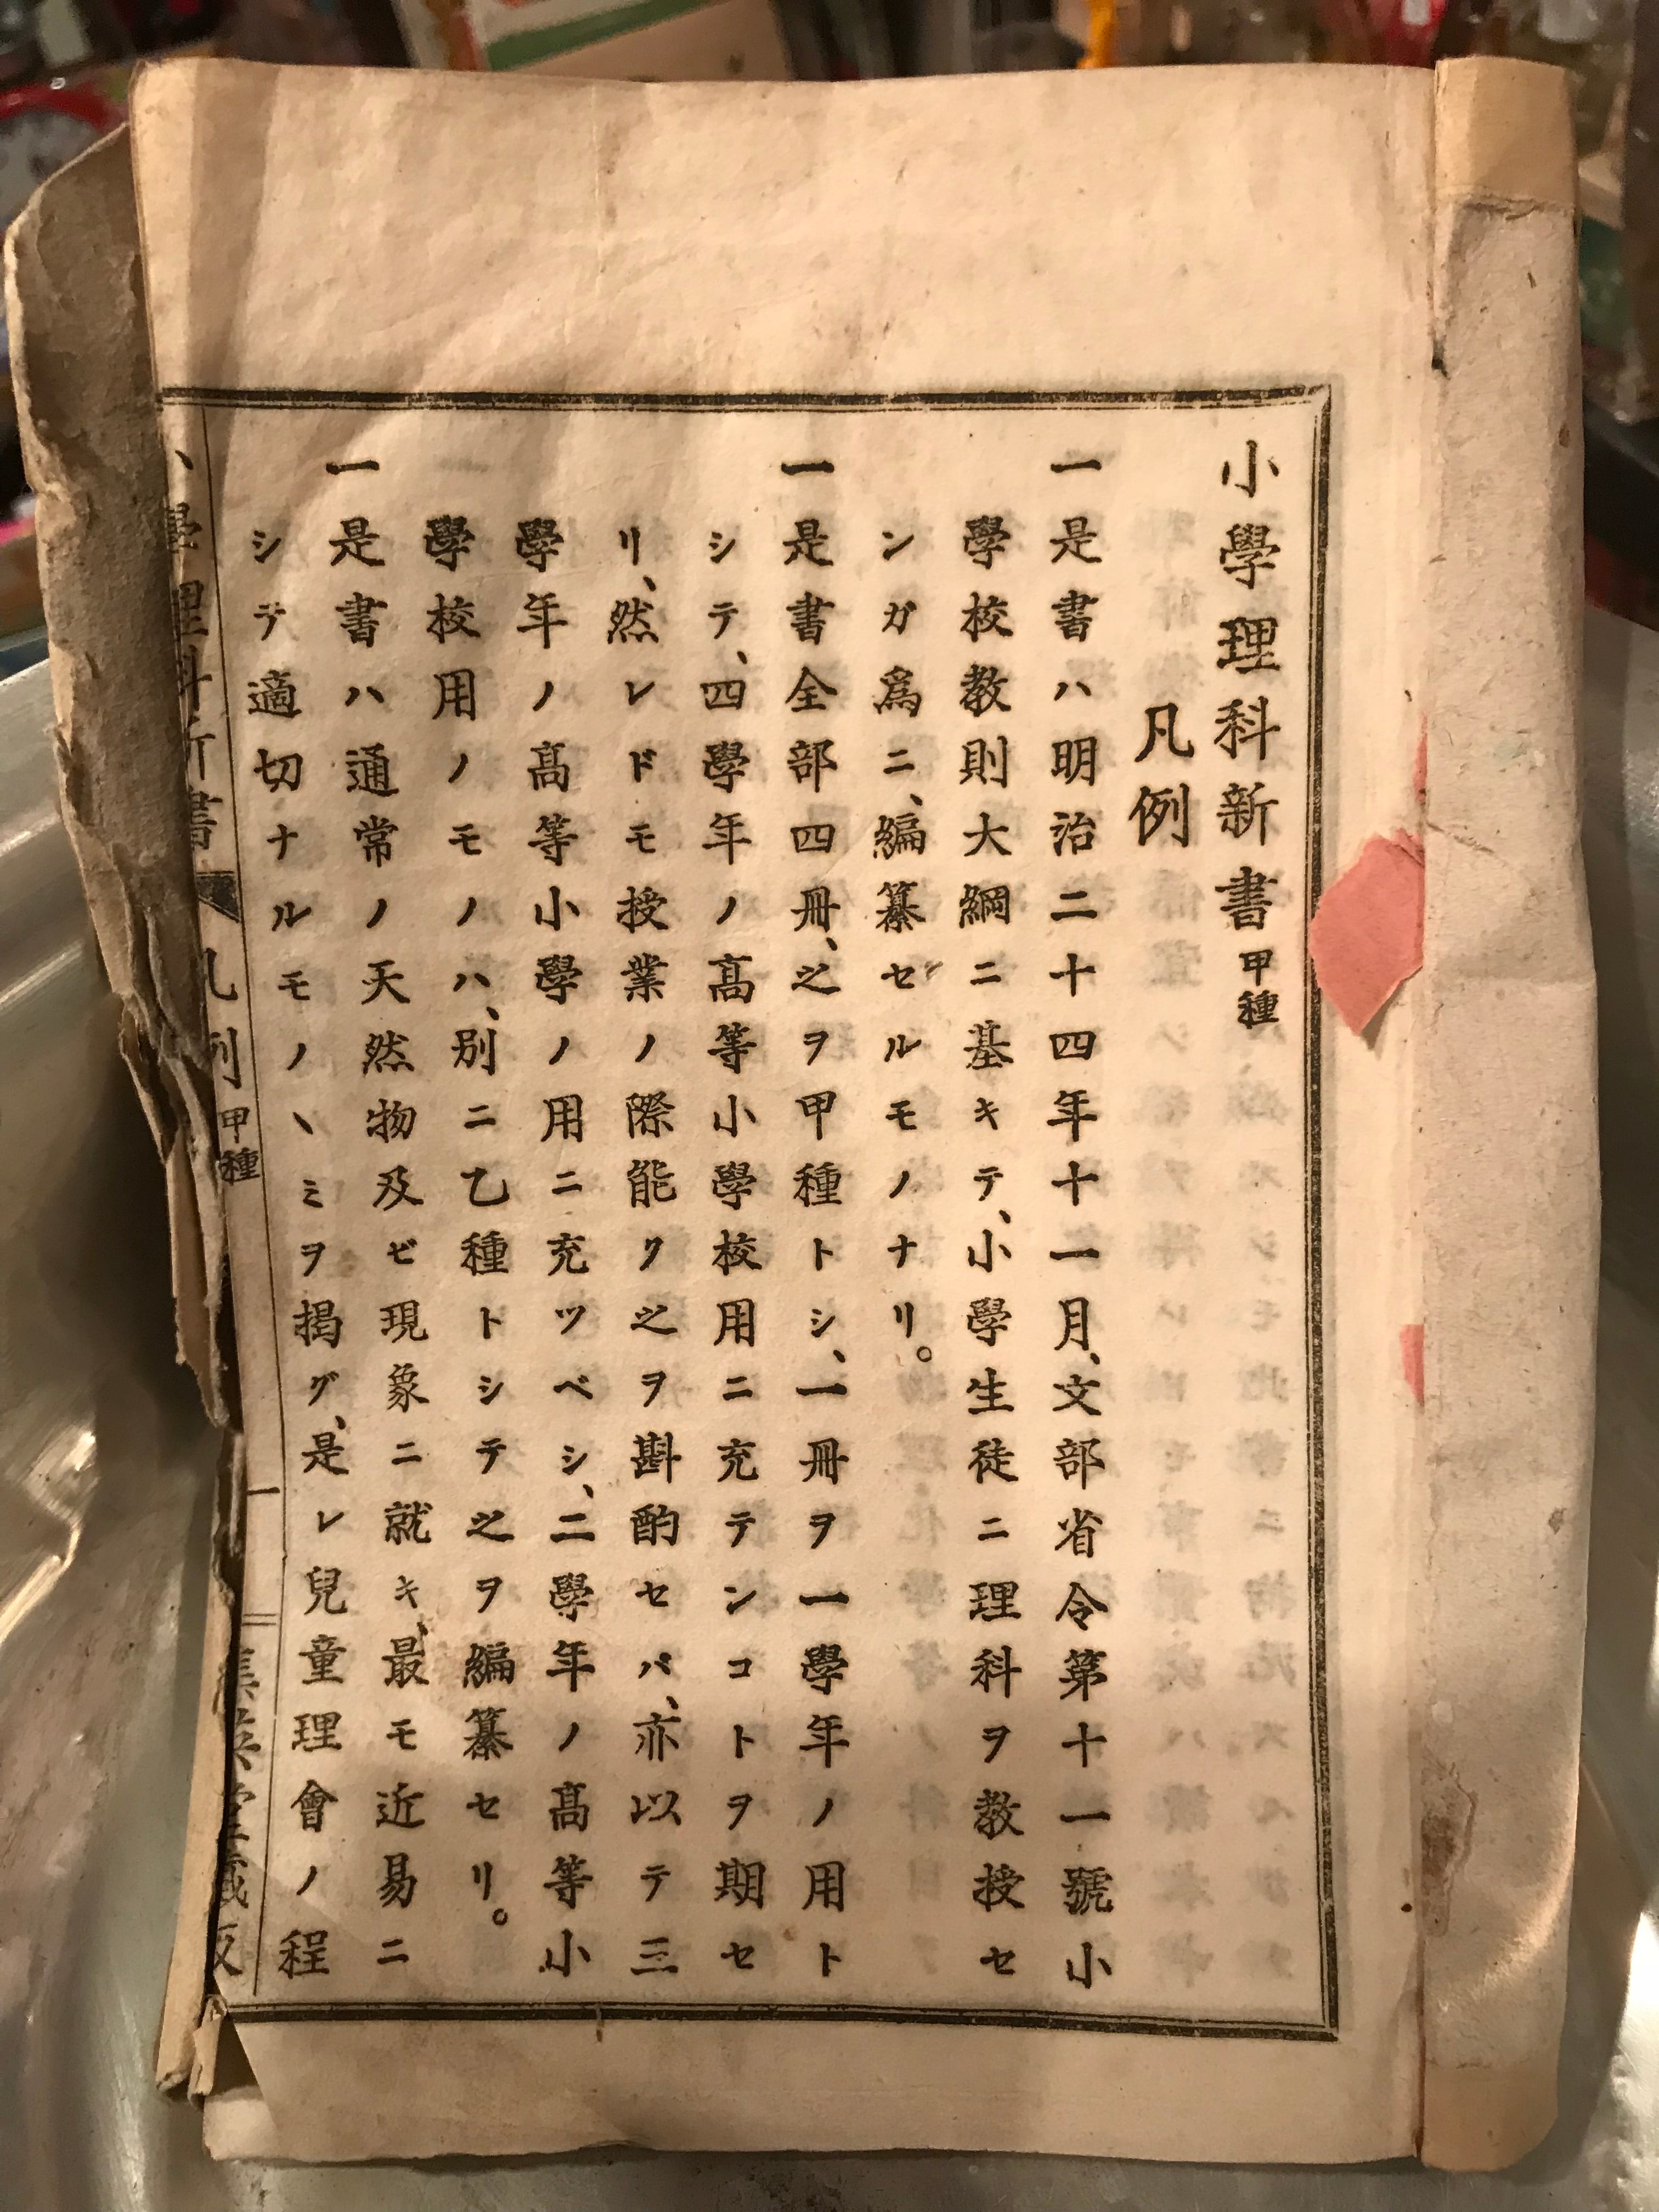 小學理科新書 甲種
凡例
一是書ハ明治二十四年十一月、文部省令第十一號小
學校教則大綱ニ基キテ、小學生徒ニ理科ヲ教授セ
ンガ爲ニ、編纂セルモノナリ。
一是書全部四冊、之ヲ甲種トシ、一冊ヲ一學年ノ用ト
シテ、四學年ノ高等小學校用ニ充テンコトヲ期セ
リ、然レドモ授業ノ際能ク之ヲ斟酌セバ、亦以テ三
學年ノ高等小學ノ用ニ充ツベシ、二學年ノ高等小
學校用ノモノハ、別ニ乙種トシテ之ヲ編纂セリ。
一是書ハ通常ノ天然物及ビ現象ニ就キ、最モ近易ニ
シテ適切ナルモノヽミヲ掲グ、是レ兒童理會ノ程
學理科新書 凡例 甲種 一